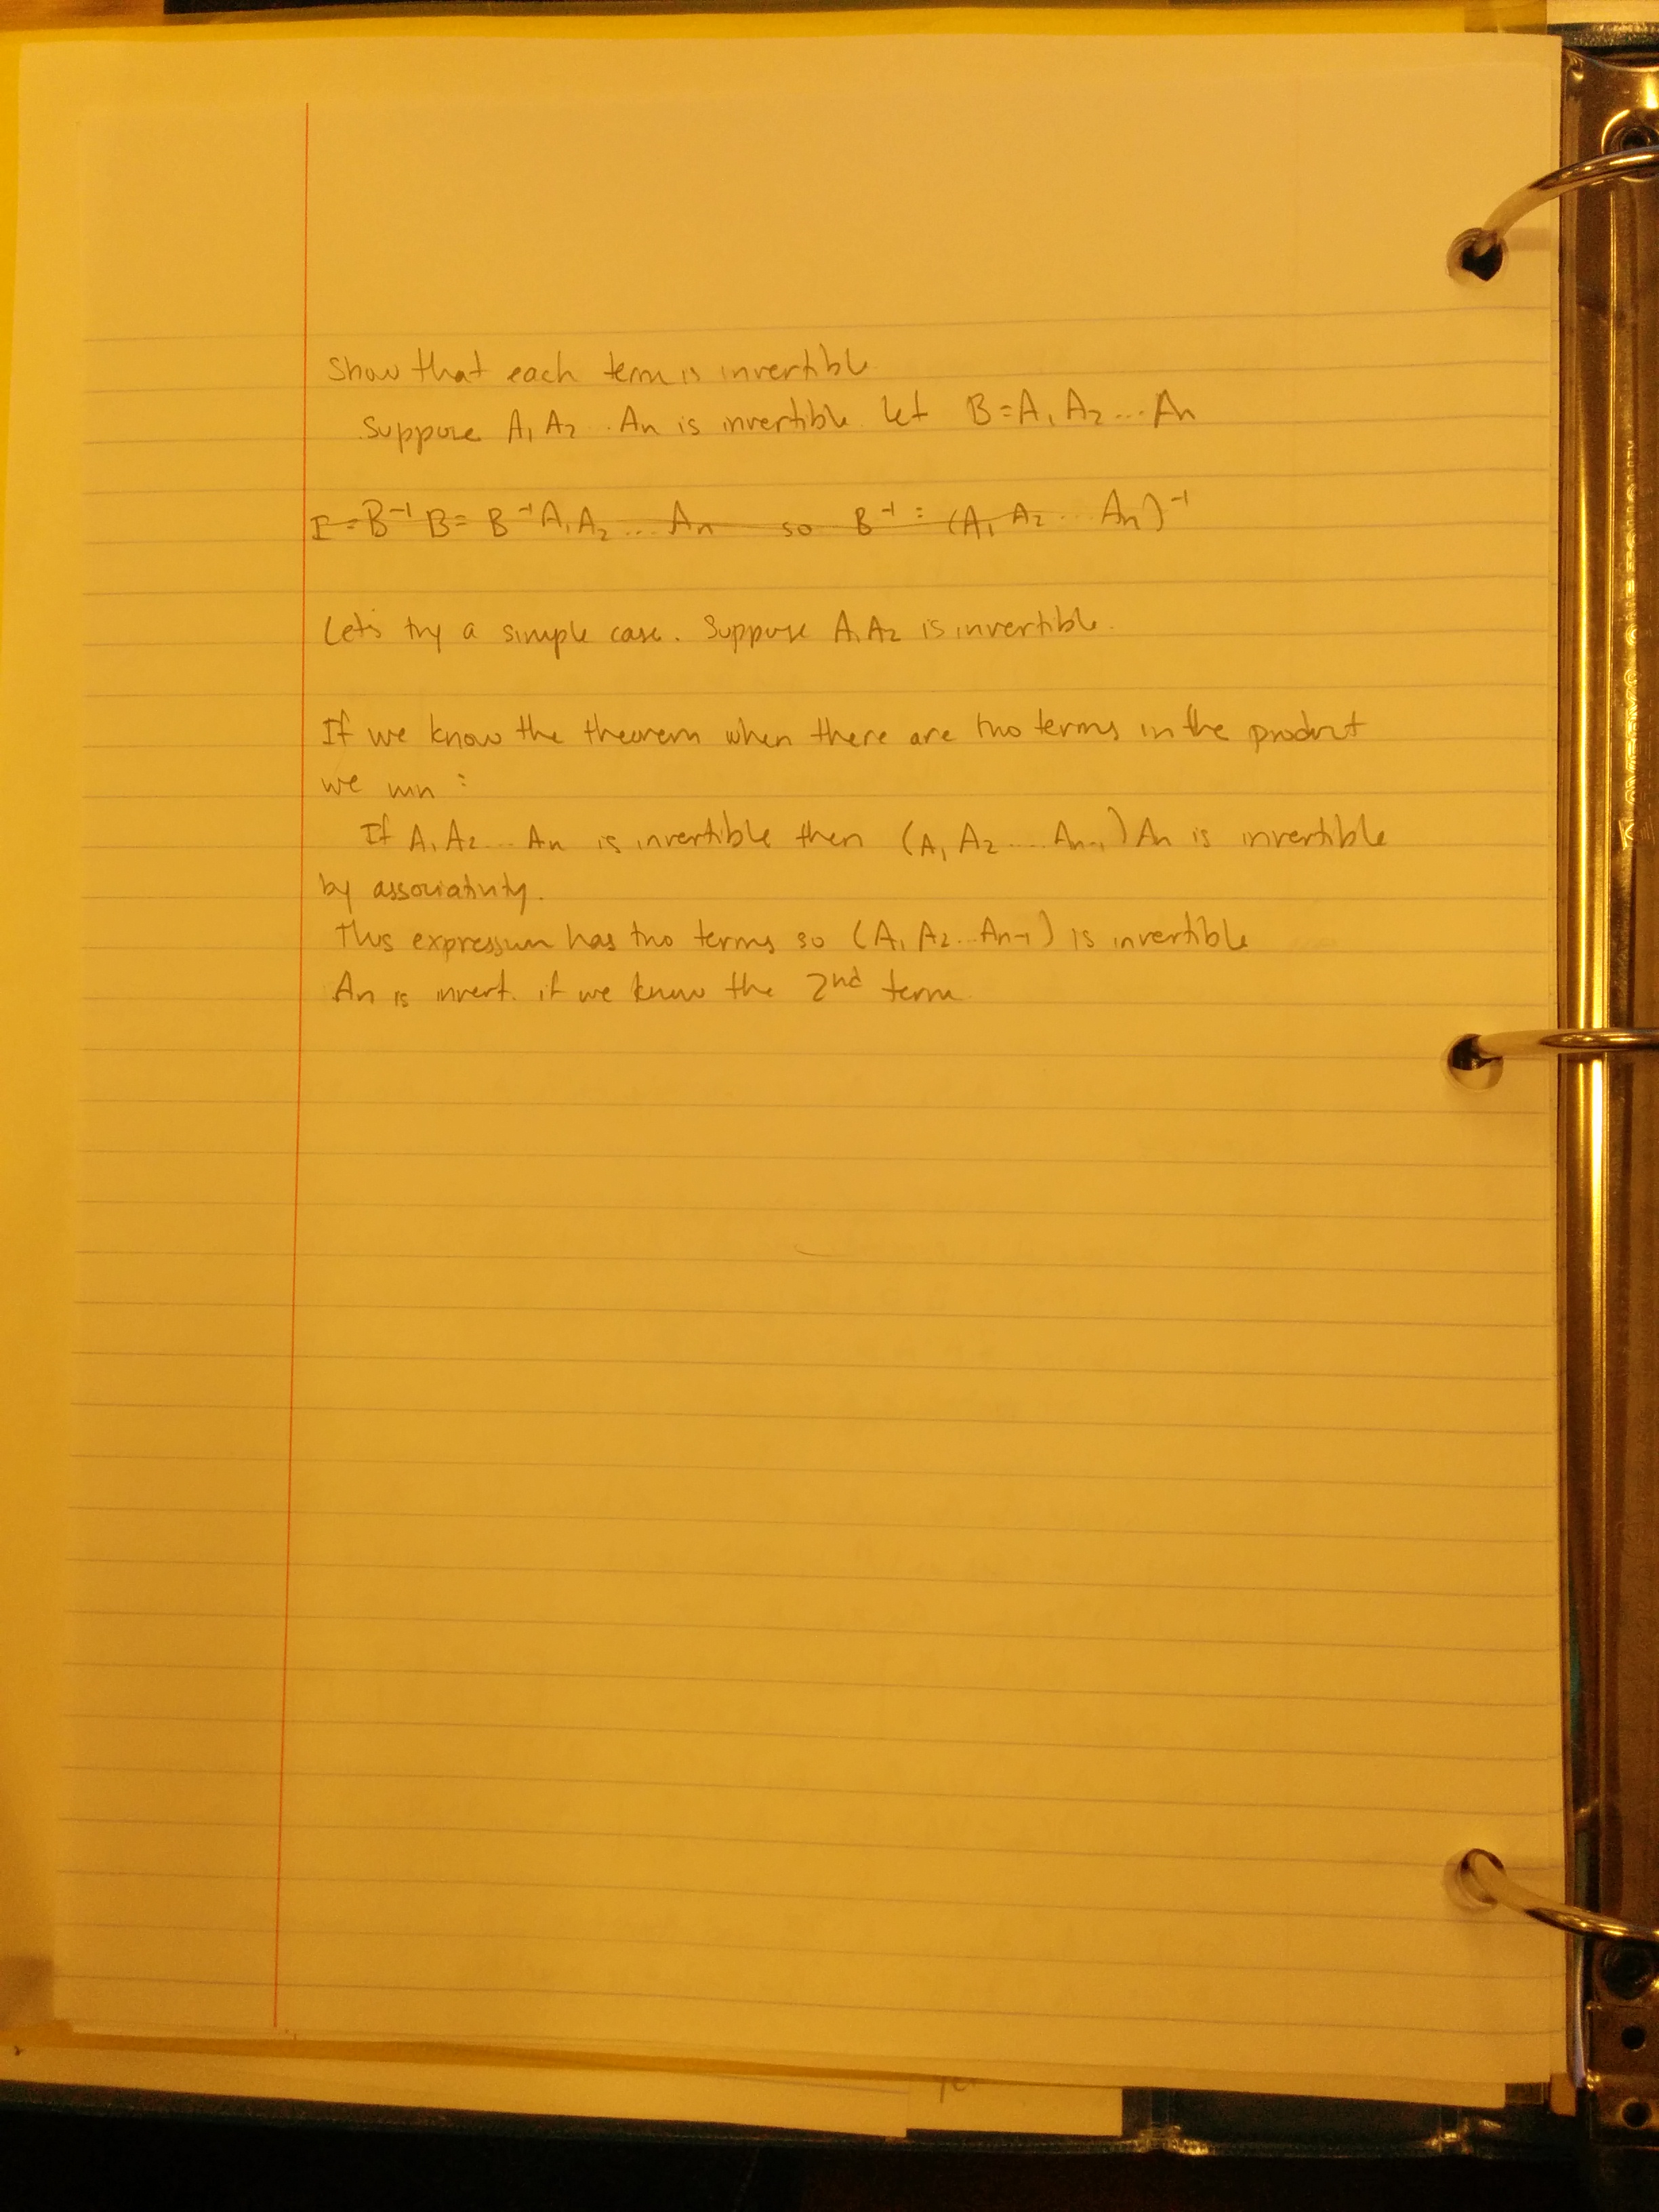 Show that each term is invertible
Suppose A₁ A₂ .. Aₙ is invertible. Let B = A₁ A₂ ... Aₙ
I = B⁻¹ B = B⁻¹ A₁ A₂ ... Aₙ so B⁻¹ = (A₁ A₂ ... Aₙ)⁻¹
Let's try a simple case. Suppose A₁ A₂ is invertible.
If we know the theorem when there are two terms in the product
we win :
If A₁ A₂ ... Aₙ is invertible then (A₁ A₂ ... Aₙ₋₁) Aₙ is invertible
by associativity.
This expression has two terms so (A₁ A₂ ... Aₙ₋₁) is invertible
Aₙ is invert. if we know the 2nd term